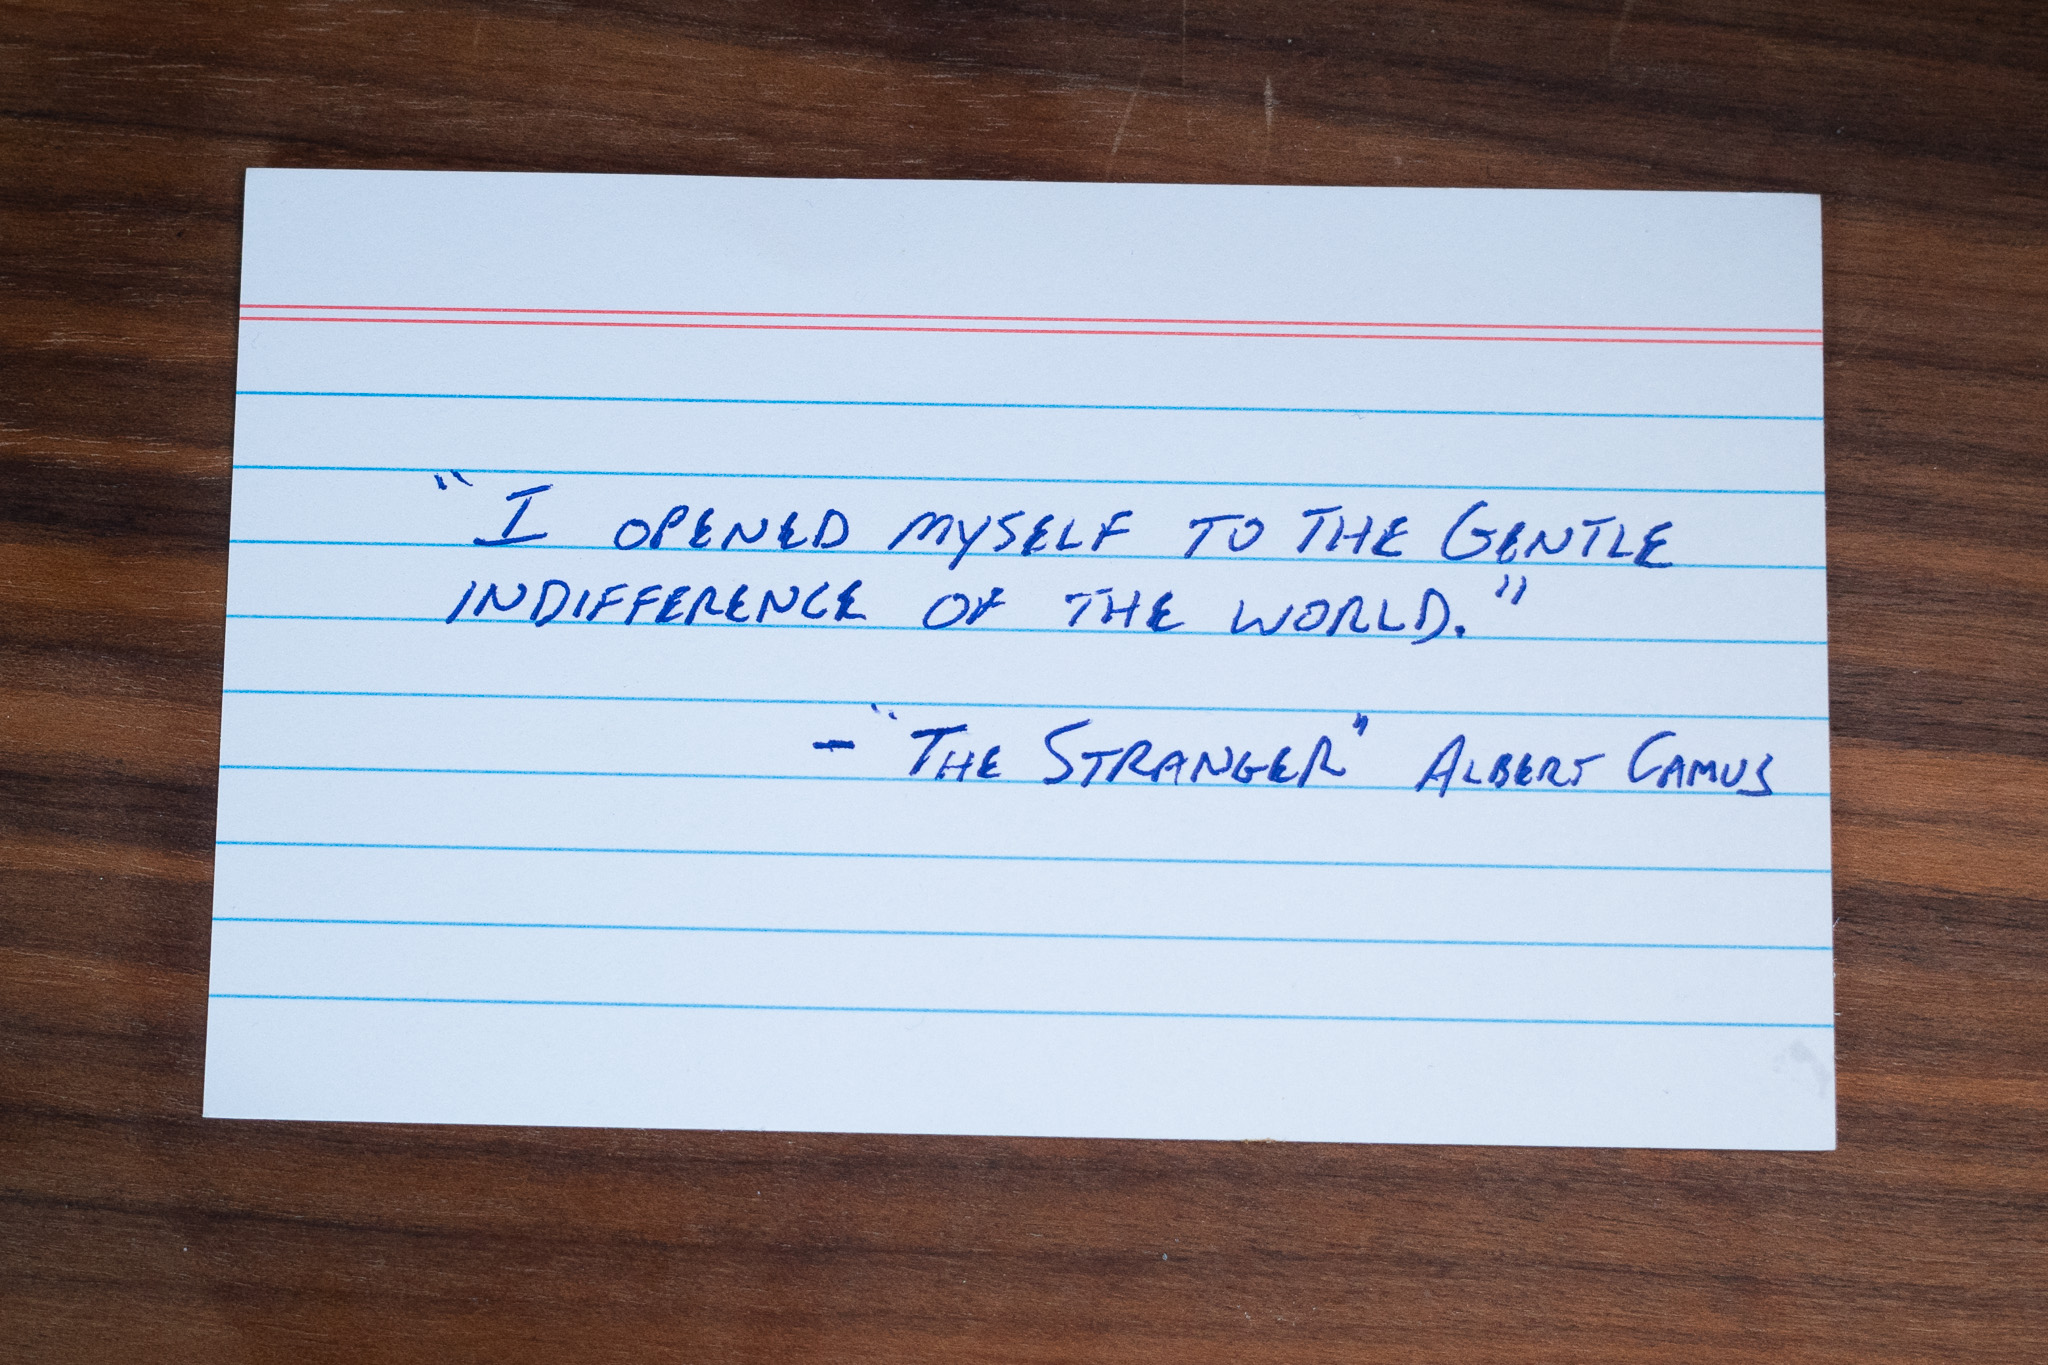 "I OPENED MYSELF TO THE GENTLE
INDIFFERENCE OF THE WORLD."
- "THE STRANGER" ALBERT CAMUS